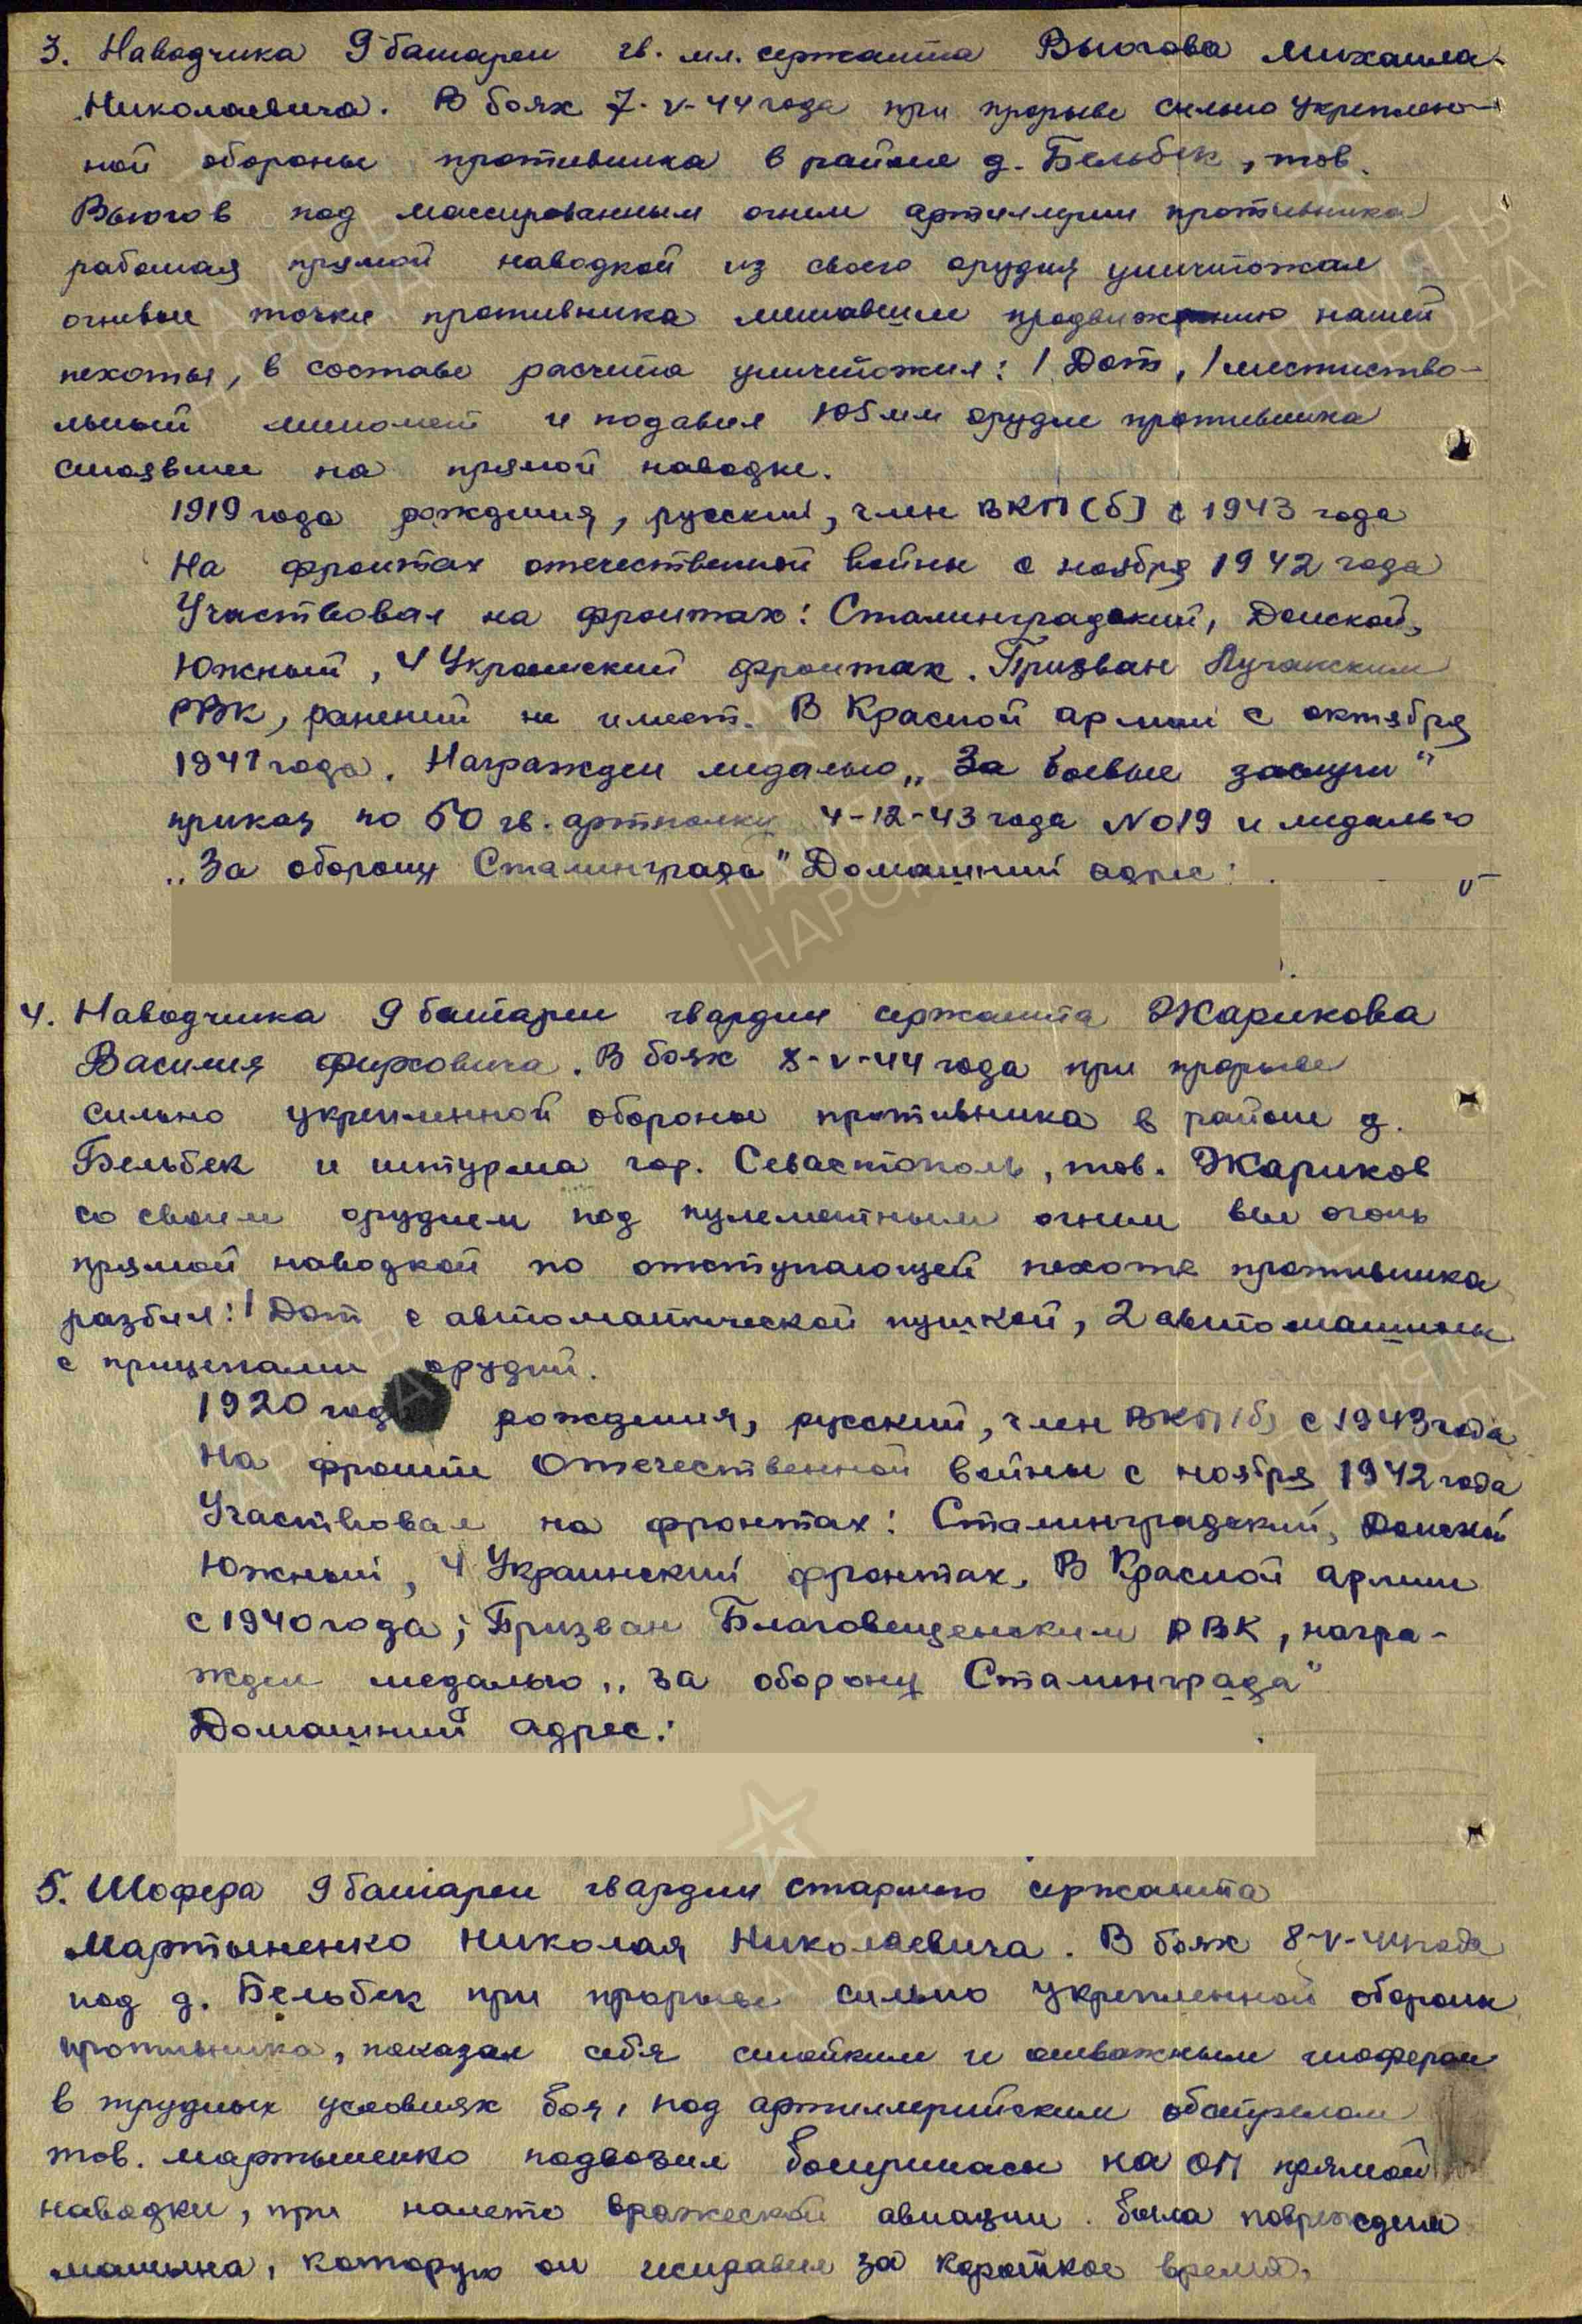 3. Наводчика 9 батареи гв. мл. сержанта Вьюгова Михаила
Николаевича. В боях 7-V-44 года при прорыве сильно укреплен-
ной обороны противника в районе д. Бельбек, тов.
Вьюгов под массированным огнем артиллерии противника
работая прямой наводкой из своего орудия уничтожал
огневые точки противника мешавшие продвижению нашей
пехоты, в составе расчета уничтожил: 1 Дот, 1 шестиство-
льный миномет и подавил 105 мм орудие противника
стоявшее на прямой наводке.
1919 года рождения, русский, член ВКП(б) с 1943 года
На фронтах отечественной войны с ноября 1942 года
Участвовал на фронтах: Сталинградский, Донской,
Южный, 4 Украинский фронтах. Призван
РВК, ранений не имеет. В Красной армии с октября
1941 года. Награжден медалью „За боевые заслуги"
приказ по 50 гв. артполку 4-12-43 года №019 и медалью
„За оборону Сталинграда" Домашний адрес:
4. Наводчика 9 батареи гвардии сержанта Жарикова
Василия Фирсовича. В боях 8-V-44 года при прорыве
сильно укрепленной обороны противника в районе д.
Бельбек и штурма гор. Севастополь, тов. Жариков
со своим орудием под пулеметным огнем вел огонь
прямой наводкой по отступающей пехоте противника
разбил: 1 Дот с автоматической пушкой, 2 автомашины
с прицепами орудий.
1920 года рождения, русский, член ВКП(б) с 1943 года
На фронте Отечественной войны с ноября 1942 года
Участвовал на фронтах: Сталинградский, Донской
Южный, 4 Украинский фронтах, В Красной армии
с 1940 года; Призван Благовещенским РВК, награ-
жден медалью „За оборону Сталинграда"
Домашний адрес:
5. Шофера 9 батареи гвардии старшего сержанта
Мартыненко Николая Николаевича. В боях 8-V-44 года
под д. Бельбек при прорыве сильно укрепленной обороны
противника, показал себя стойким и отважным шофером
в трудных условиях боя, под артиллерийским обстрелом
тов. Мартыненко подвозил боеприпасы на ОП прямой
наводки, при налете вражеской авиации была повреждена
машина, которую он исправил за короткое время.
ПАМЯТЬ НАРОДА